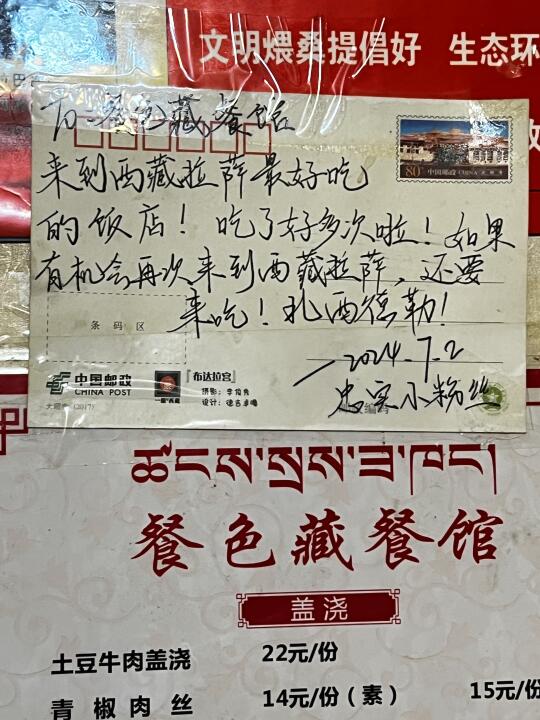 文明煨桑提倡好 生态环
To 餐色藏餐馆
80分 中国邮政 CHINA
来到西藏拉萨最好吃
的饭店！吃了好多次啦！如果
有机会再次来到西藏拉萨，还要
来吃！扎西德勒！
条码区
—2024.7.2
忠实小粉丝
中国邮政
CHINA POST
『布达拉宫』
(2017)
ཚངས་སྲས་ཟ་ཁང།
餐色藏餐馆
盖浇
土豆牛肉盖浇 22元/份
青椒肉丝 14元/份（素） 15元/份